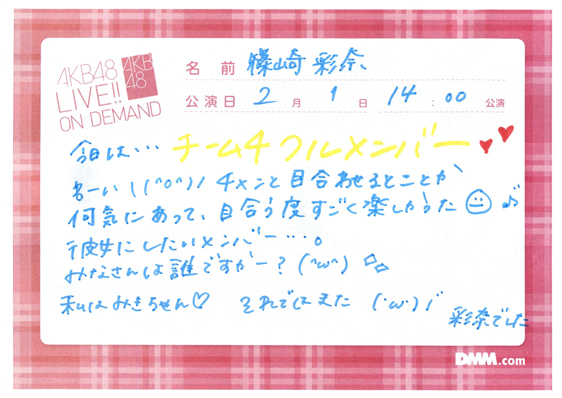 AKB48
LIVE!!
ON DEMAND
AKB
48
名前 篠崎彩奈
公演日 2月1日 14:00 公演
今日は… チーム4 フルメンバー
わーい\(^o^)/ 4メンと目合わせるとことか
何気にあって、目合う度すごく楽しかった
彼女にしたいメンバー…。
みなさんは誰ですかー?(^ω^)
私はみきちゃん♡ それではまた (・ω・)/
彩奈でした
DMM.com